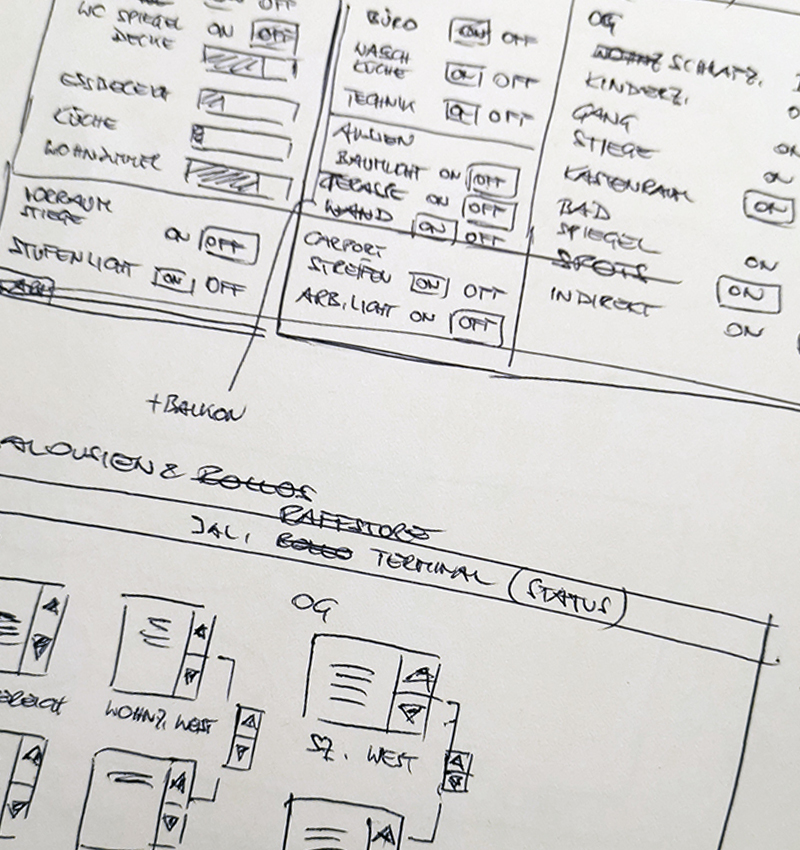 OFF
WC SPIEGEL ON OFF
DECKE
ESSBEREICH
KÜCHE
WOHNZIMMER
VORRAUM
STIEGE ON OFF
STUFENLICHT ON OFF
BÜRO ON OFF
WASCH
KÜCHE ON OFF
TECHNIK ON OFF
AUSSEN
BAUMLICHT ON OFF
TERASSE ON OFF
WAND ON OFF
CARPORT
STREIFEN ON OFF
ARB. LICHT ON OFF
+BALKON
OG
SCHLAFZ.
KINDERZ.
GANG
STIEGE ON
KASTENRAUM ON
BAD ON
SPIEGEL
SPOTS ON
INDIREKT ON
ON
JALOUSIEN & ROLLOS
RAFFSTORE
JAL. ROLLO TERMINAL STATUS
OG
BEREICH
WOHNZ. WEST
SZ. WEST